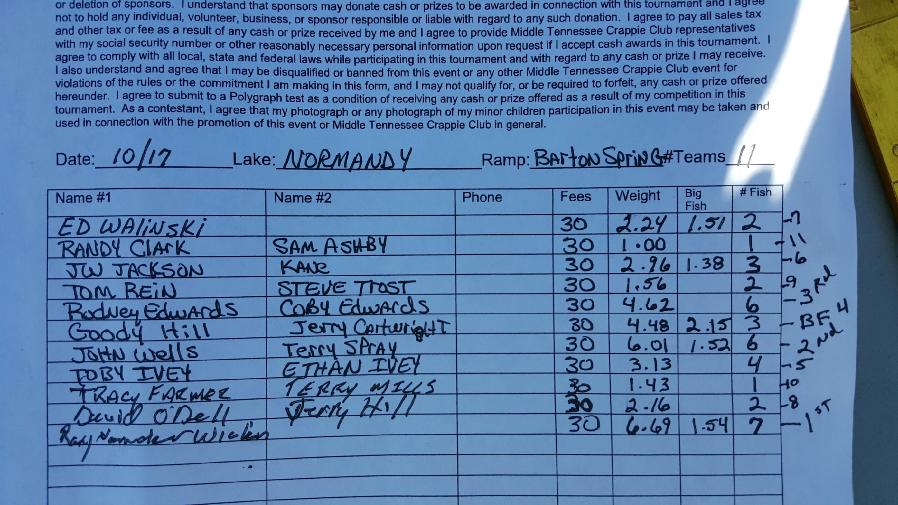 or deletion of sponsors. I understand that sponsors may donate cash or prizes to be awarded in connection with this tournament and I agree
not to hold any individual, volunteer, business, or sponsor responsible or liable with regard to any such donation. I agree to pay all sales tax
and other tax or fee as a result of any cash or prize received by me and I agree to provide Middle Tennessee Crappie Club representatives
with my social security number or other reasonably necessary personal information upon request if I accept cash awards in this tournament. I
agree to comply with all local, state and federal laws while participating in this tournament and with regard to any cash or prize I may receive.
I also understand and agree that I may be disqualified or banned from this event or any other Middle Tennessee Crappie Club event for
violations of the rules or the commitment I am making in this form, and I may not qualify for, or be required to forfeit, any cash or prize offered
hereunder. I agree to submit to a Polygraph test as a condition of receiving any cash or prize offered as a result of my competition in this
tournament. As a contestant, I agree that my photograph or any photograph of my minor children participation in this event may be taken and
used in connection with the promotion of this event or Middle Tennessee Crappie Club in general.
Date: 10/17 Lake: NORMANDY Ramp: BARTON SPRING #Teams 11
Name #1 Name #2 Phone Fees Weight Big Fish # Fish
ED WALINSKI 30 2.24 1.51 2 -7
RANDY CLARK SAM ASHBY 30 1.00 1 -11
JW JACKSON KANE 30 2.96 1.38 3 -6
TOM REIN STEVE TROST 30 1.56 2 -9
Rodney Edwards COBY Edwards 30 4.62 6 -3rd
Goody Hill Jerry Cartwright 30 4.48 2.15 3 - BF 4
JOHN Wells Terry SPRAY 30 6.01 1.52 6 - 2nd
TOBY IVEY ETHAN IVEY 30 3.13 4 -5
TRACY FARMER TERRY MILLS 30 1.43 1 -10
David O'Dell Jerry Hill 30 2.16 2 -8
Ray 30 6.69 1.54 7 -1ST